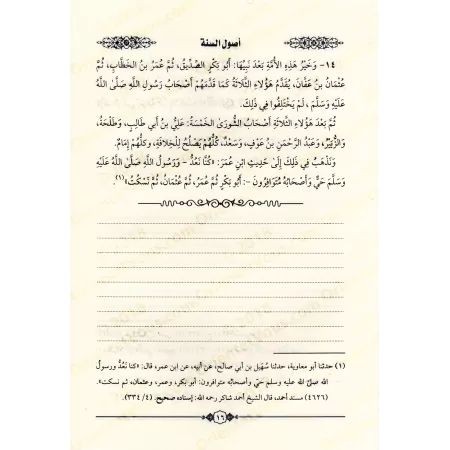 أصول السنة
١٤- وَخَيْرُ هَذِهِ الأُمَّةِ بَعْدَ نَبِيِّهَا: أَبُو بَكْرٍ الصِّدِّيقُ، ثُمَّ عُمَرُ بنُ الخَطَّابِ، ثُمَّ
عُثْمَانُ بنُ عَفَّانَ، يُقَدَّمُ هَؤُلَاءِ الثَّلَاثَةُ كَمَا قَدَّمَهُمْ أَصْحَابُ رَسُولِ اللَّهِ صَلَّىٰ اللَّهُ
عَلَيْهِ وَسَلَّمَ، لَمْ يَخْتَلِفُوا فِي ذَلِكَ.
ثُمَّ بَعْدَ هَؤُلَاءِ الثَّلَاثَةِ أَصْحَابُ الشُّورَىٰ الخَمْسَةُ: عَلِيُّ بنُ أَبِي طَالِبٍ، وَطَلْحَةُ،
وَالزُّبَيْرُ، وَعَبْدُ الرَّحْمَنِ بنُ عَوْفٍ، وَسَعْدٌ، كُلُّهُمْ يَصْلُحُ لِلْخِلَافَةِ، وَكُلُّهُمْ إِمَامٌ.
وَنَذْهَبُ فِي ذَلِكَ إِلَىٰ حَدِيثِ ابنِ عُمَرَ: «كُنَّا نَعُدُّ - وَرَسُولُ اللَّهِ صَلَّىٰ اللَّهُ عَلَيْهِ
وَسَلَّمَ حَيٌّ وَأَصْحَابُهُ مُتَوَافِرُونَ -: أَبُو بَكْرٍ ثُمَّ عُمَرُ، ثُمَّ عُثْمَانُ، ثُمَّ نَسْكُتُ»(١).
(١) حدثنا أبو معاوية، حدثنا سُهَيل بن أبي صالح، عن أبيه، عن ابن عمر، قال: «كنا نَعُدُّ ورسولُ
الله صلَّىٰ الله عليه وسلم حيّ وأصحابُه متوافرون: أبو بكر، وعمر، وعثمان، ثم نسكت».
(٤٦٢٦) مسند أحمد، قال الشيخ أحمد شاكر رحمه الله: إسناده صحيح. (٤/ ٣٣٤)
١٦